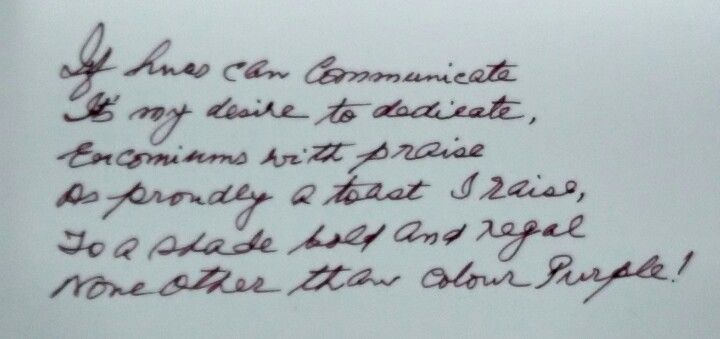 If hues can Communicate
It's my desire to dedicate,
Encomiums with praise
As proudly a toast I raise,
To a shade bold and regal
None other than colour Purple!